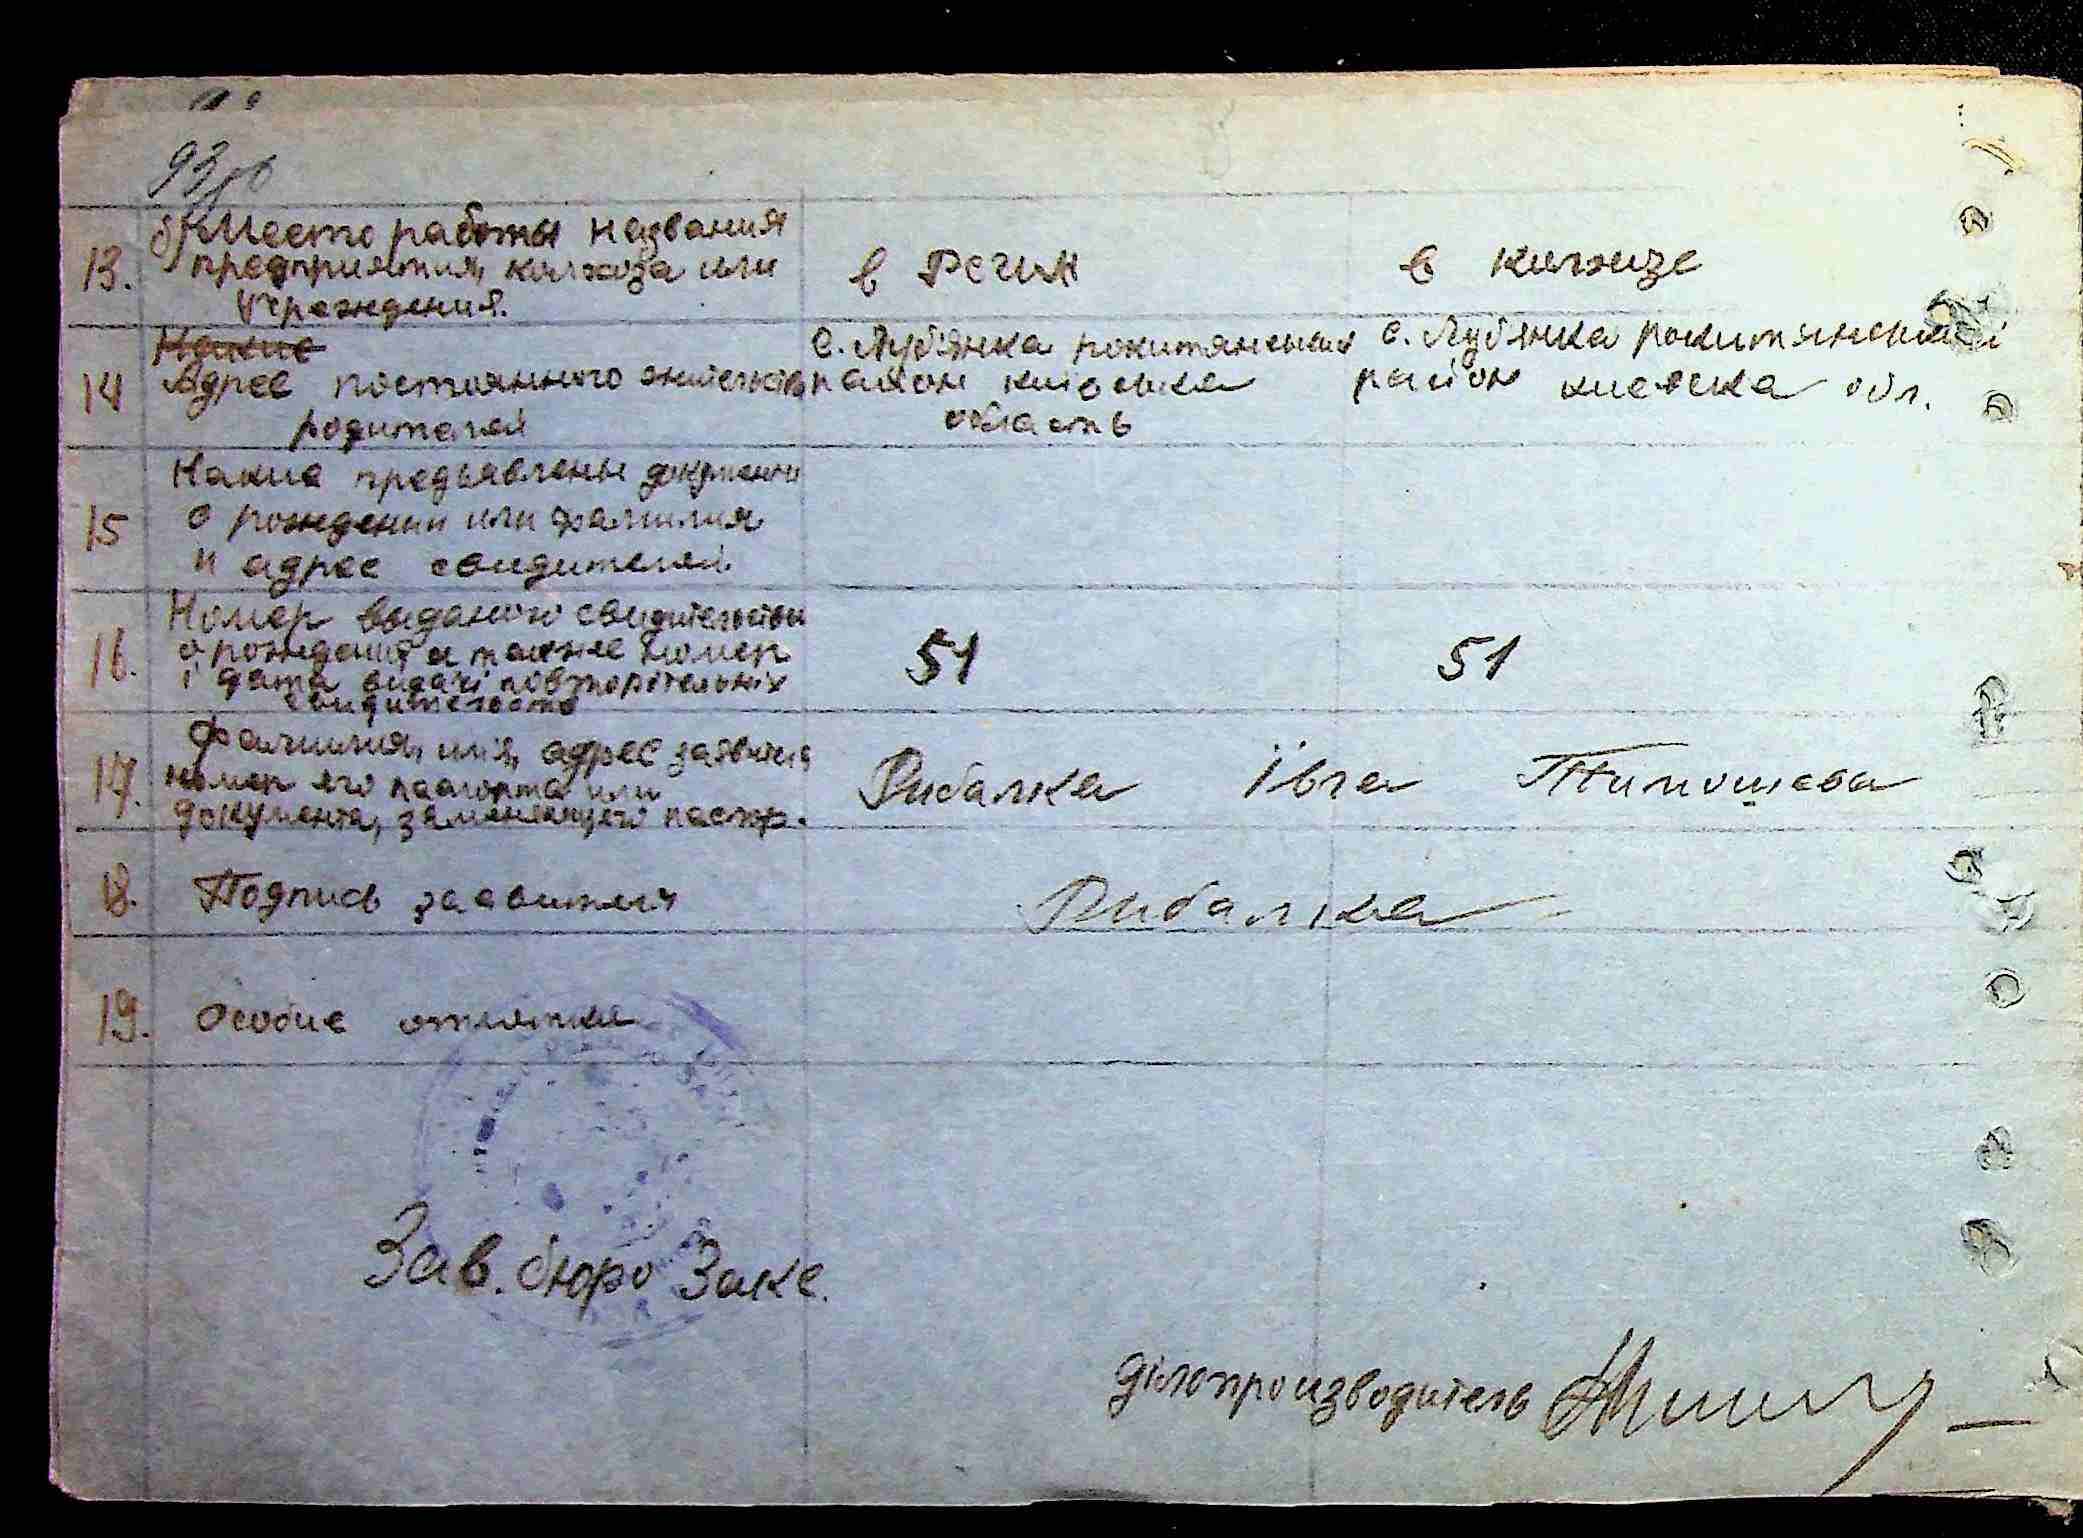 93об
13. б) Место работы названия
предприятия, колхоза или
учреждения.
в колхозе
Какие
14 Адрес постоянного жительства
родителей
с. Луб'янка рокитянський
район київська
область
с. Лубянка рокитянський
район киевска обл.
15 Какие предъявлены документи
о рождении или фамилия
и адрес свидителей
16. Номер выданого свидительства
о рождения, а также номер
і дата видачі повторительніх
свидительств
51 51
17. Фамилия, имя, адрес заявителя
номер его паспорта или
документа, заменяющего паспор.
Рибалка Івга Тимошева
18. Подпись заявителя
Рибалка
19. Особие отметки
Зав. бюро Загс.
ділопроизводитель